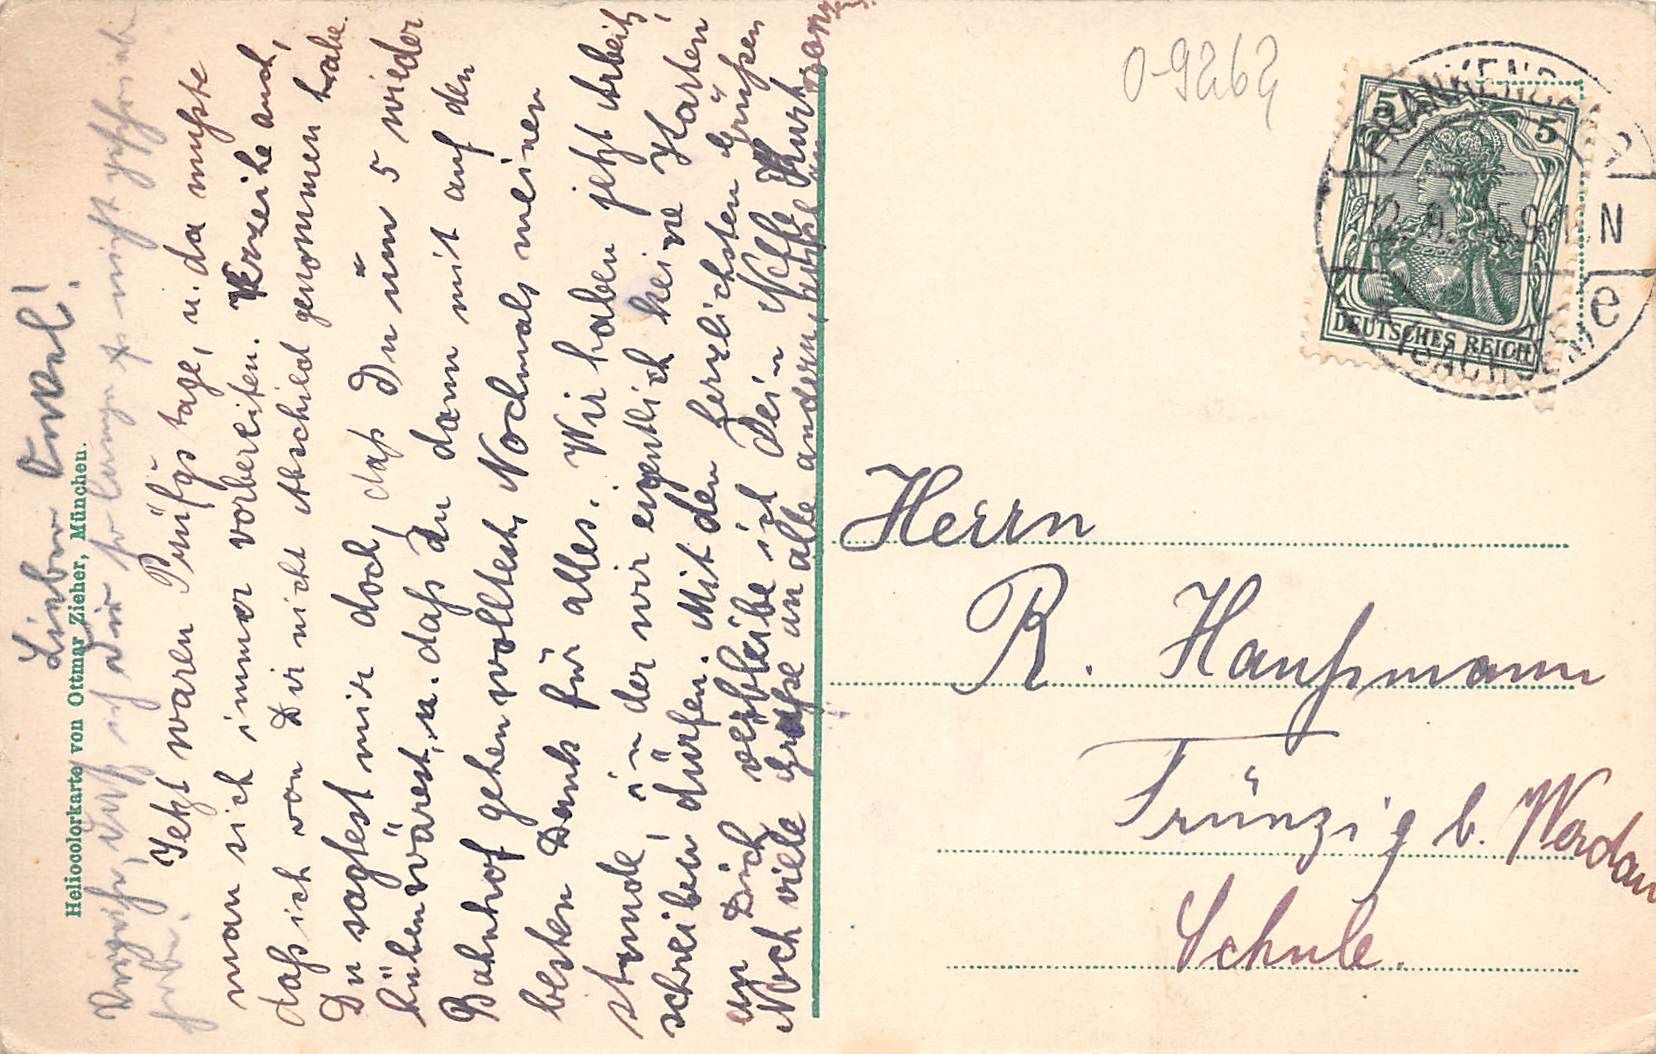 Lieber Onkel!
Verzeihe, daß ich Dir so lange nicht geschrieben
habe.
Jetzt waren Prüfgstage, u. da mußte
man sich immer vorbereiten. Verzeihe auch,
daß ich von Dir nicht Abschied genommen habe.
Du sagtest mir doch, daß Du um 5 wieder
hüben wärest, u. daß Du dann mit auf den
Bahnhof gehen wolltest. Nochmals meinen
besten Dank für alles. Wir haben jetzt Arbeits,
stunde, in der wir eigentlich keine Karten
schreiben dürfen. Mit den herzlichsten Grüßen
an Dich verbleibe ich Dein Neffe Kurt
Noch viele Grüße an alle andern,
Heliocolorkarte von Ottmar Zieher, München.
0-9262
5 5
DEUTSCHES REICH
FRANKENBERG
N
(SACHSEN)
e
Herrn
R. Haußmann
Trünzig b. Werdau
Schule.